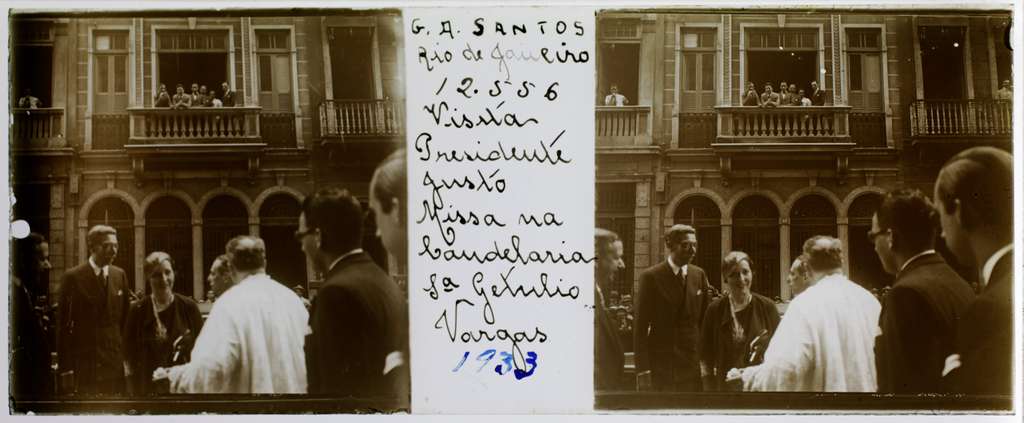 G. A. SANTOS
Rio de Janeiro
12.556
Visita
Presidente
Justo
Missa na
Candelaria
Sa Getulio
Vargas
1933